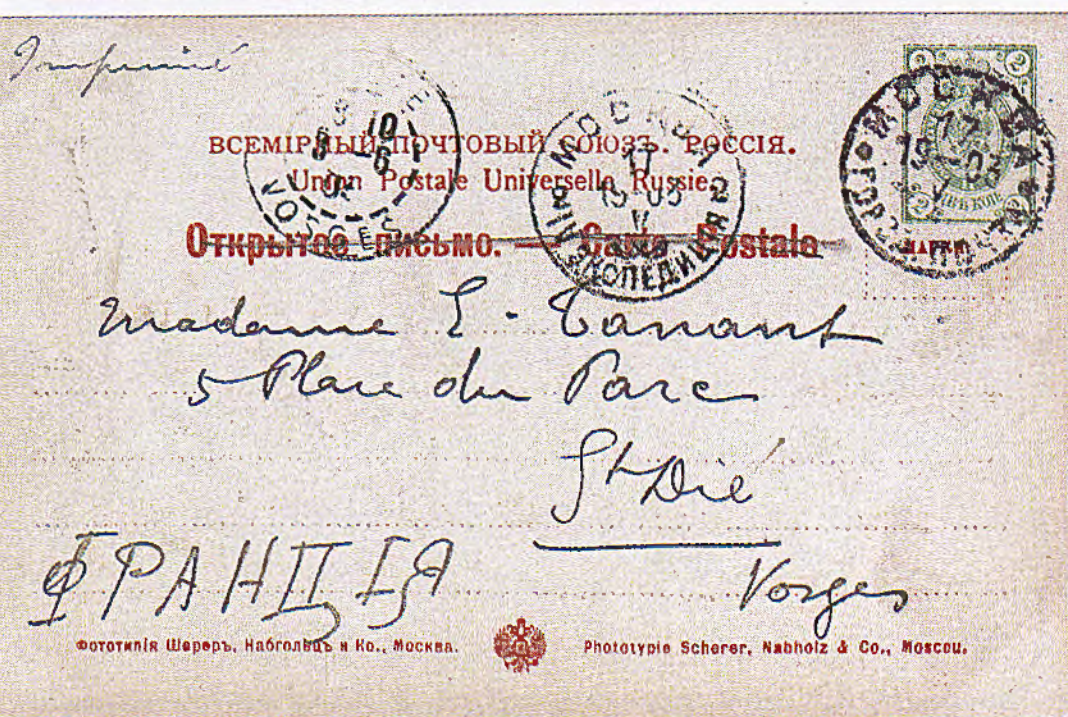 Imprimé
ВСЕМІРНЫЙ ПОЧТОВЫЙ СОЮЗЪ. РОССІЯ.
Union Postale Universelle. Russie.
Открытое письмо. — Carte Postale
МОСКВА
17
19-03
V
ГОР. ПОЧТА
2 2
ДВѢ КОП.
МАРКИ
МОСКВА
17
19 03
V
ЭКСПЕДИЦІЯ
10
6
VOSGES
Madame E. Tanant
5 Place du Parc
St Dié
Vosges
ФРАНЦІЯ
Фототипія Шереръ, Набгольцъ и Ко., Москва.
Phototypie Scherer, Nabholz & Co., Moscou.